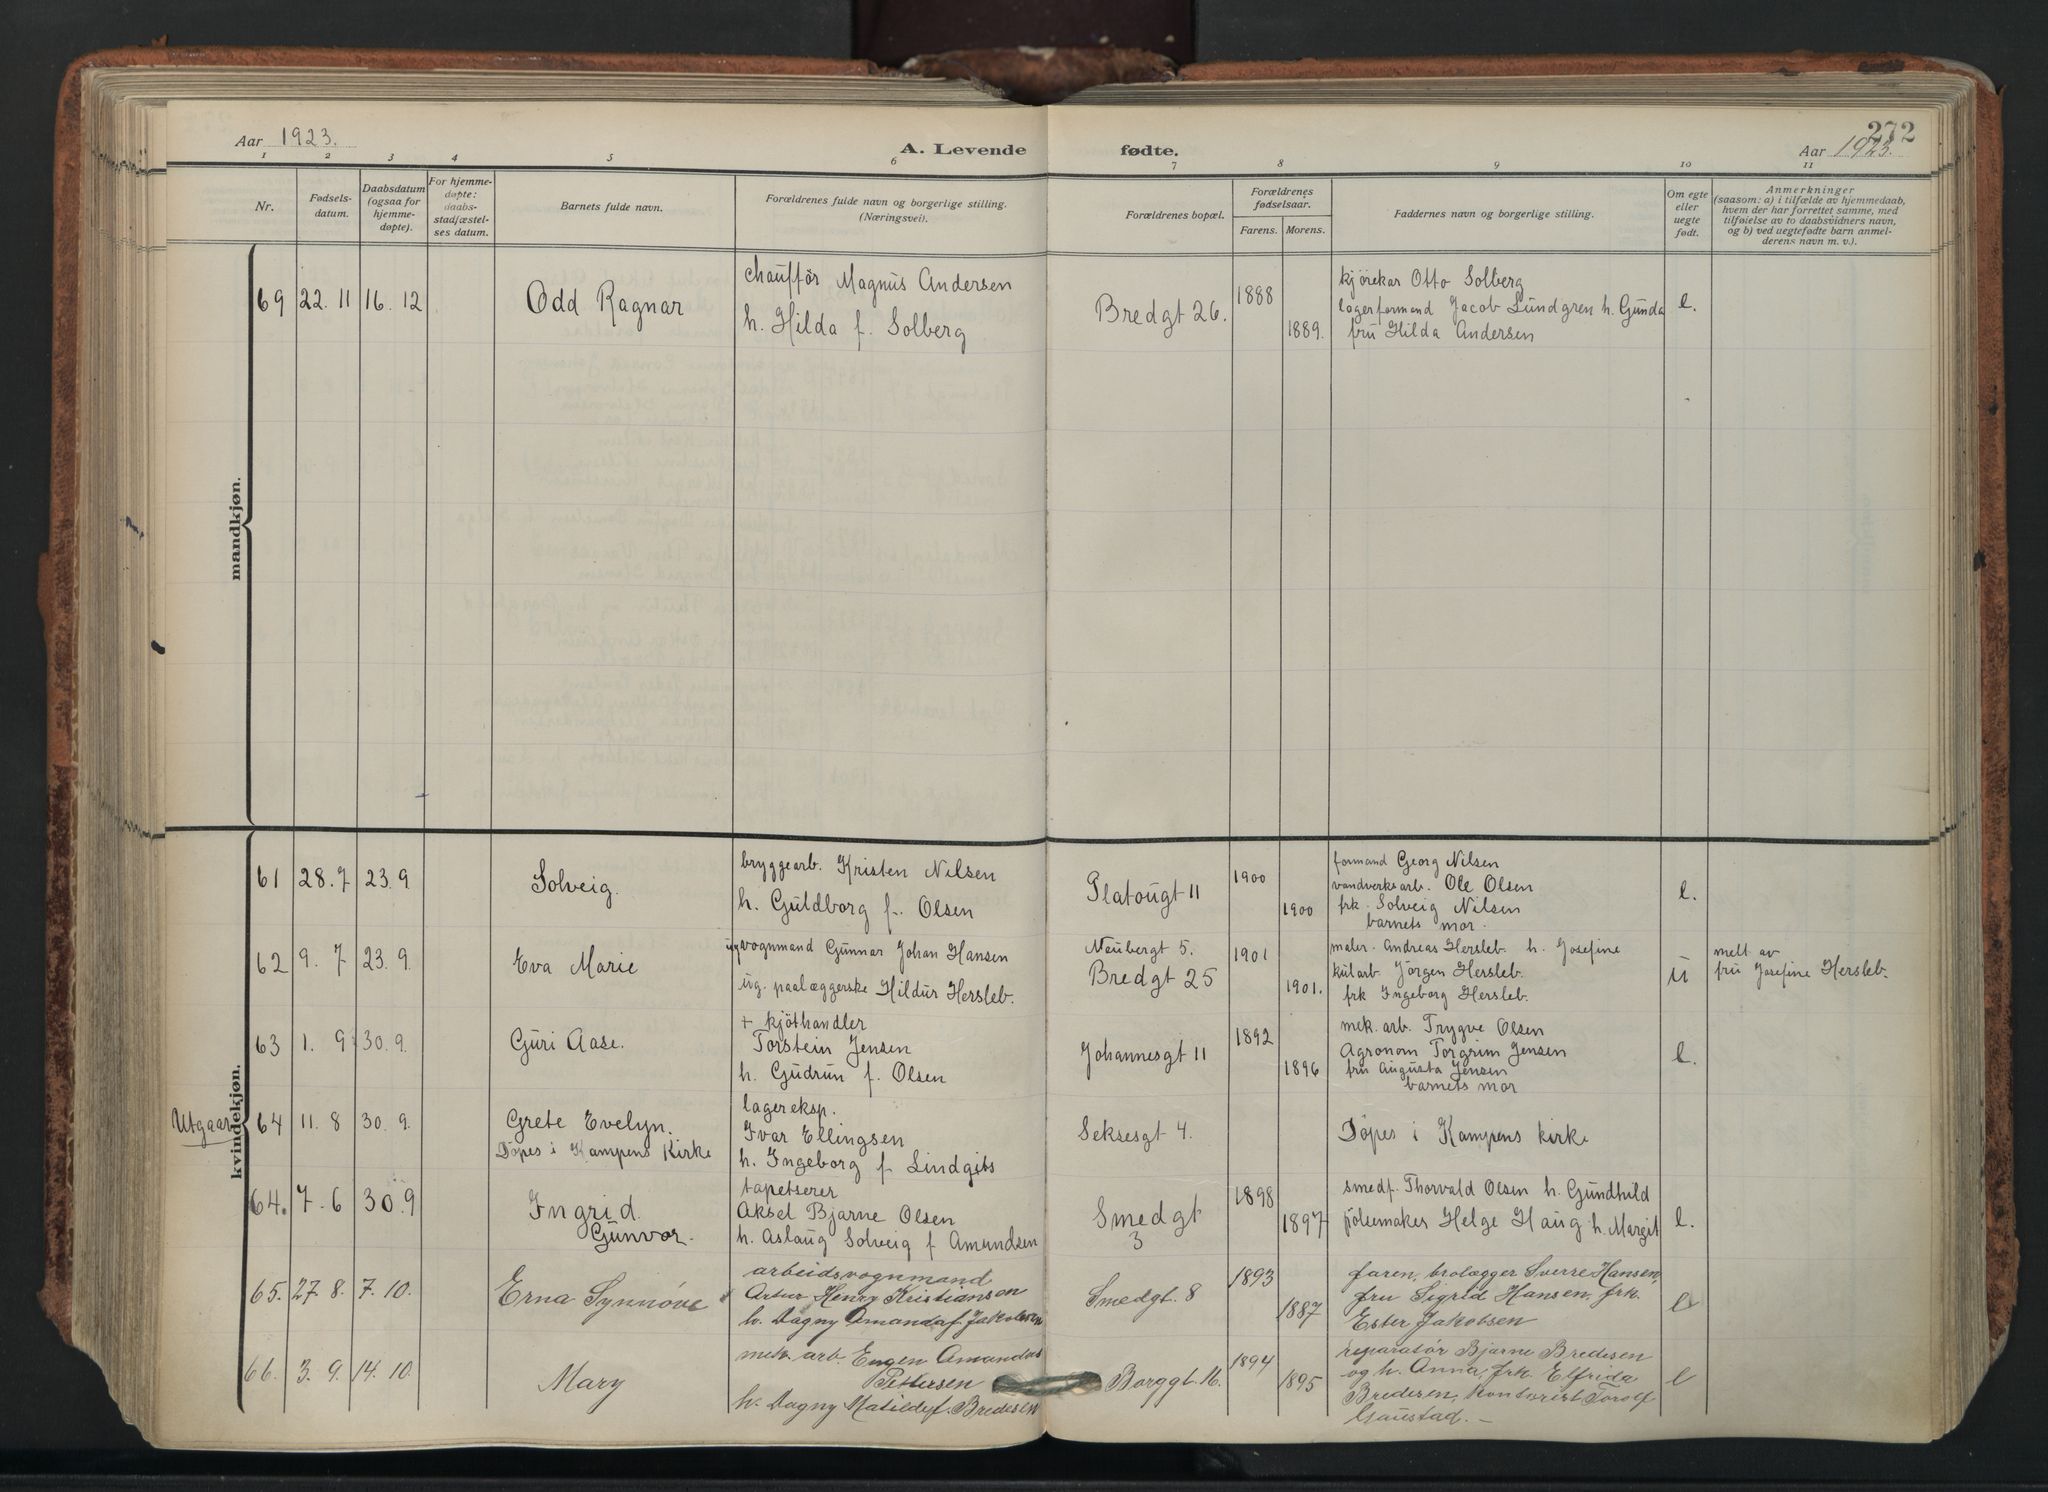 272
Aar 1923.
A. Levende
fødte.
Aar 1923.
1 2 3 4 5 6 7 8 9 10 11
Nr.
Fødsels-
datum.
Daabsdatum
(ogsaa for
hjemme-
døpte).
For hjemme-
døpte:
daabs-
stadfæstel-
ses datum.
Barnets fulde navn.
Forældrenes fulde navn og borgerlige stilling.
(Næringsvei).
Forældrenes bopæl.
Forældrenes
fødselsaar.
Farens. Morens.
Faddernes navn og borgerlige stilling.
Om egte
eller
uegte
født.
Anmerkninger
(saasom: a) i tilfælde av hjemmedaab,
hvem der har forrettet samme, med
tilføielse av to daabsvidners navn,
og b) ved uegtefødte barn anmel-
derens navn m. v.).
mandkjøn.
69 22. 11 16. 12
Odd Ragnar
chauffør Magnus Andersen
h. Hilda f. Solberg
Bredgt 26.
1888
1889.
kjørekar Otto Solberg
lagerformand Jacob Lundgren h. Gunda
fru Hilda Andersen
e.
kvindekjøn.
61 28. 7 23. 9
Solveig.
bryggearb. Kristen Nilsen
h. Guldborg f. Olsen
Platougt 11
1900
1900
formand Georg Nilsen
vandverksarb. Ole Olsen
frk. Solveig Nilsen
barnets mor.
e.
62 9. 7 23. 9.
Eva Marie
ug vognmand Gunnar Johan Hansen
ug. paalæggerske Hildur Hersleb.
Neubergt 5.
Bredgt 25
1901
1901.
maler. Andreas Hersleb. h. Josefine
kularb Jørgen Hersleb.
frk Ingeborg Hersleb.
u
melt av
fru Josefine Hersleb.
63 1. 9 30. 9.
Guri Aase.
+ kjøthandler
Torstein Jensen
h. Gudrun f. Olsen
Johannesgt 11
1892
1896
mek. arb. Trygve Olsen
Agronom Torgrim Jensen
fru Augusta Jensen
barnets mor
e.
Utgaar
64 11. 8 30. 9.
Grete Evelyn.
Døpes i Kampens Kirke
lagereksp.
Ivar Ellingsen
h. Ingeborg f. Lindgits
Seksesgt 4.
Døpes i Kampens kirke
64. 7. 6 30. 9
Ingrid
Gunvor.
tapetserer
Aksel Bjarne Olsen
h. Aslaug Solveig f Amundsen
Smedgt
3
1898
1897
smedf. Thorvald Olsen h. Gundhild
pølsemaker Helge Haug h. Margit
e.
65. 27. 8. 7. 10.
Erna Synnøve
arbeidsvognmand
Artur Henry Kristianson
h. Dagny Amanda f. Jakobsen
Smedgt. 8
1893
1887
faren, brolægger Sverre Hansen,
fru Sigrid Hansen, frk.
Ester Jakobsen
e
66. 3. 9. 14. 10.
Mary
mek. arb. Eugen Amandus
Pettersen
h. Dagny Matilde f. Bredesen
Borggt. 16.
1894
1895
reparatør Bjarne Bredesen
og h. Anna, frk. Elfrida
Bredesen, kontorist Torolf
Gaustad. –
e